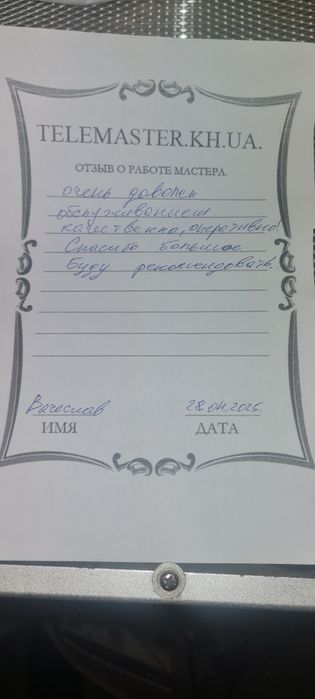 TELEMASTER.KH.UA.
ОТЗЫВ О РАБОТЕ МАСТЕРА.
очень доволен
обслуживанием.
качественно, оперативно!
Спасибо большое
Буду рекомендовать.
Вячеслав 28.04.2025.
ИМЯ ДАТА